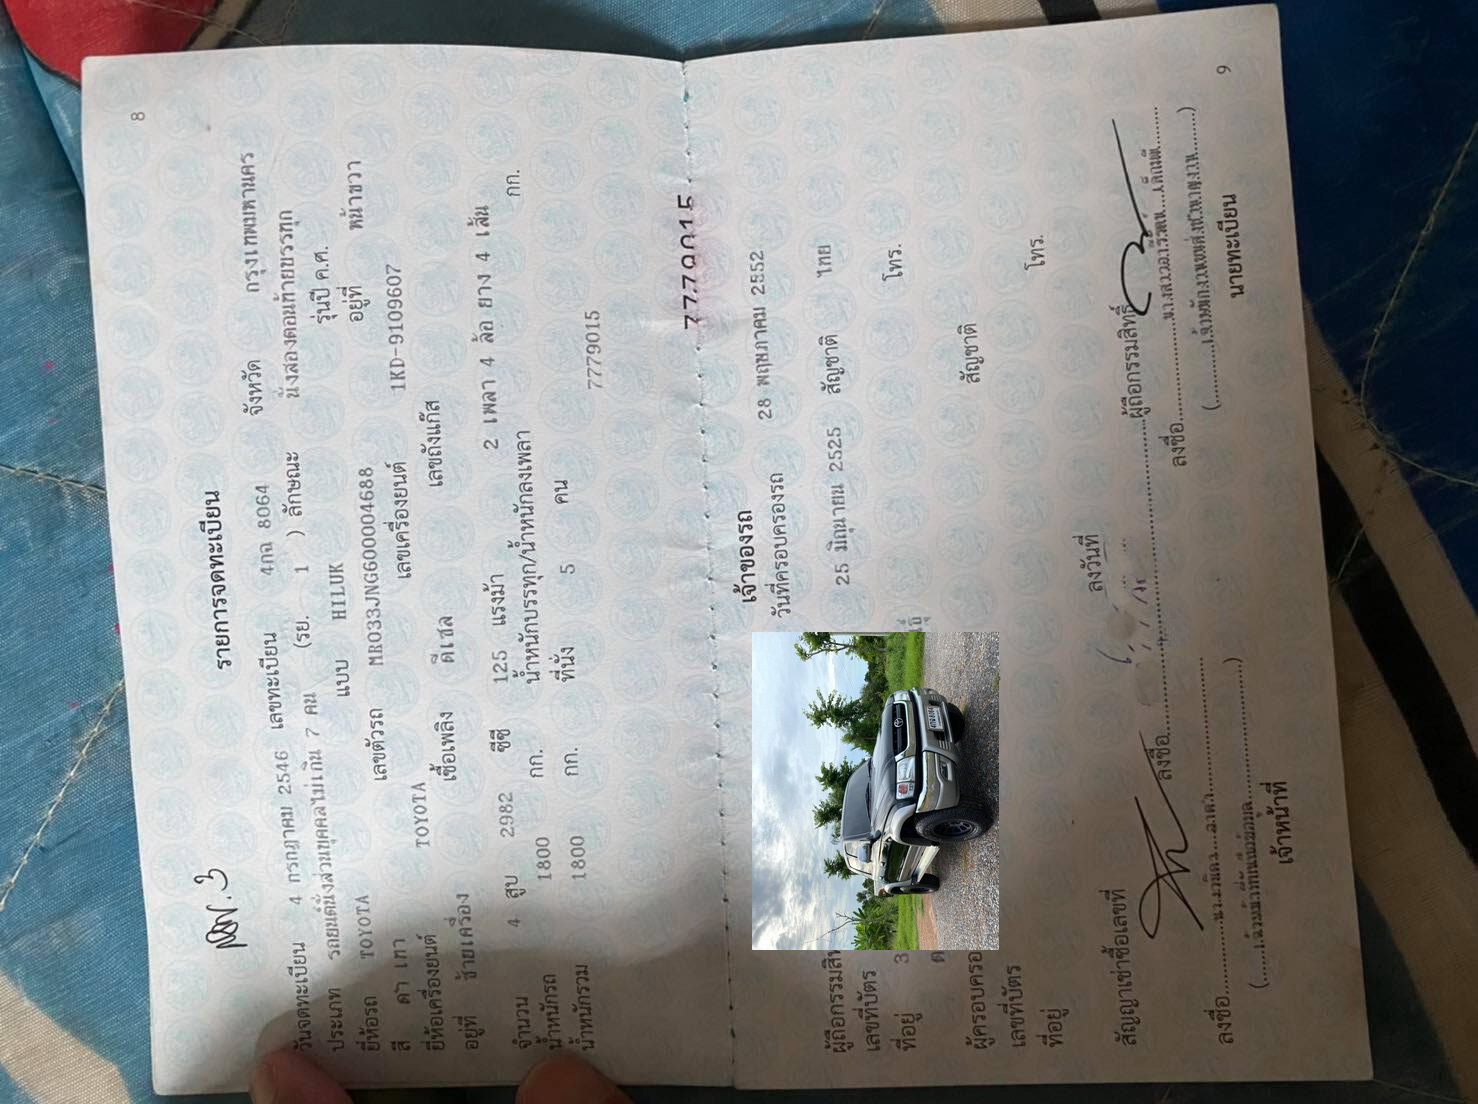 8
รายการจดทะเบียน
วันจดทะเบียน 4 กรกฎาคม 2546 เลขทะเบียน 4กฉ 8064 จังหวัด กรุงเทพมหานคร
ประเภท รถยนต์นั่งส่วนบุคคลไม่เกิน 7 คน (รย. 1 ) ลักษณะ นั่งสองตอนท้ายบรรทุก
ยี่ห้อรถ TOYOTA แบบ HILUK รุ่นปี ค.ศ.
สี ดำ เทา เลขตัวรถ MR033JNG600004688 อยู่ที่ หน้าขวา
ยี่ห้อเครื่องยนต์ TOYOTA เลขเครื่องยนต์ 1KD-9109607
อยู่ที่ ซ้ายเครื่อง เชื้อเพลิง ดีเซล เลขถังแก๊ส
จำนวน 4 สูบ 2982 ซีซี 125 แรงม้า 2 เพลา 4 ล้อ ยาง 4 เส้น
น้ำหนักรถ 1800 กก. น้ำหนักบรรทุก/น้ำหนักลงเพลา กก.
น้ำหนักรวม 1800 กก. ที่นั่ง 5 คน 7779015
7779015
เจ้าของรถ
วันที่ครอบครองรถ 28 พฤษภาคม 2552
ผู้ถือกรรมสิทธิ์
เลขที่บัตร 25 มิถุนายน 2525 สัญชาติ ไทย
ที่อยู่ 3 โทร.
ผู้ครอบครอง
เลขที่บัตร สัญชาติ
ที่อยู่ โทร.
สัญญาเช่าซื้อเลขที่ ลงวันที่ ผู้ถือกรรมสิทธิ์
ลงชื่อ ลงชื่อ
เจ้าหน้าที่ นายทะเบียน
9